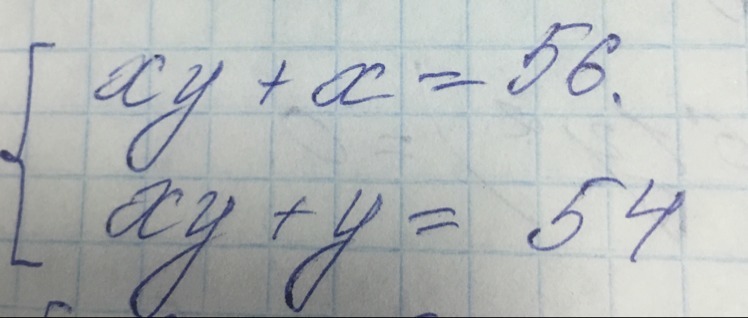 xy + x = 56.
xy + y = 54